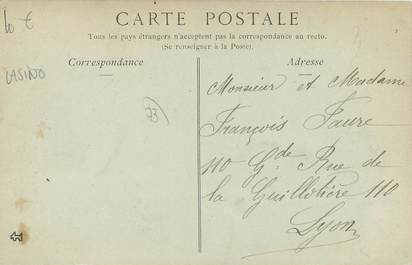 10 €
CARTE POSTALE
Tous les pays étrangers n'acceptent pas la correspondance au recto.
(Se renseigner à la Poste).
Correspondance
Adresse
CASINO
73
Monsieur et Madame
François Faure
110 Gde Rue de
la Guillotière 110
Lyon